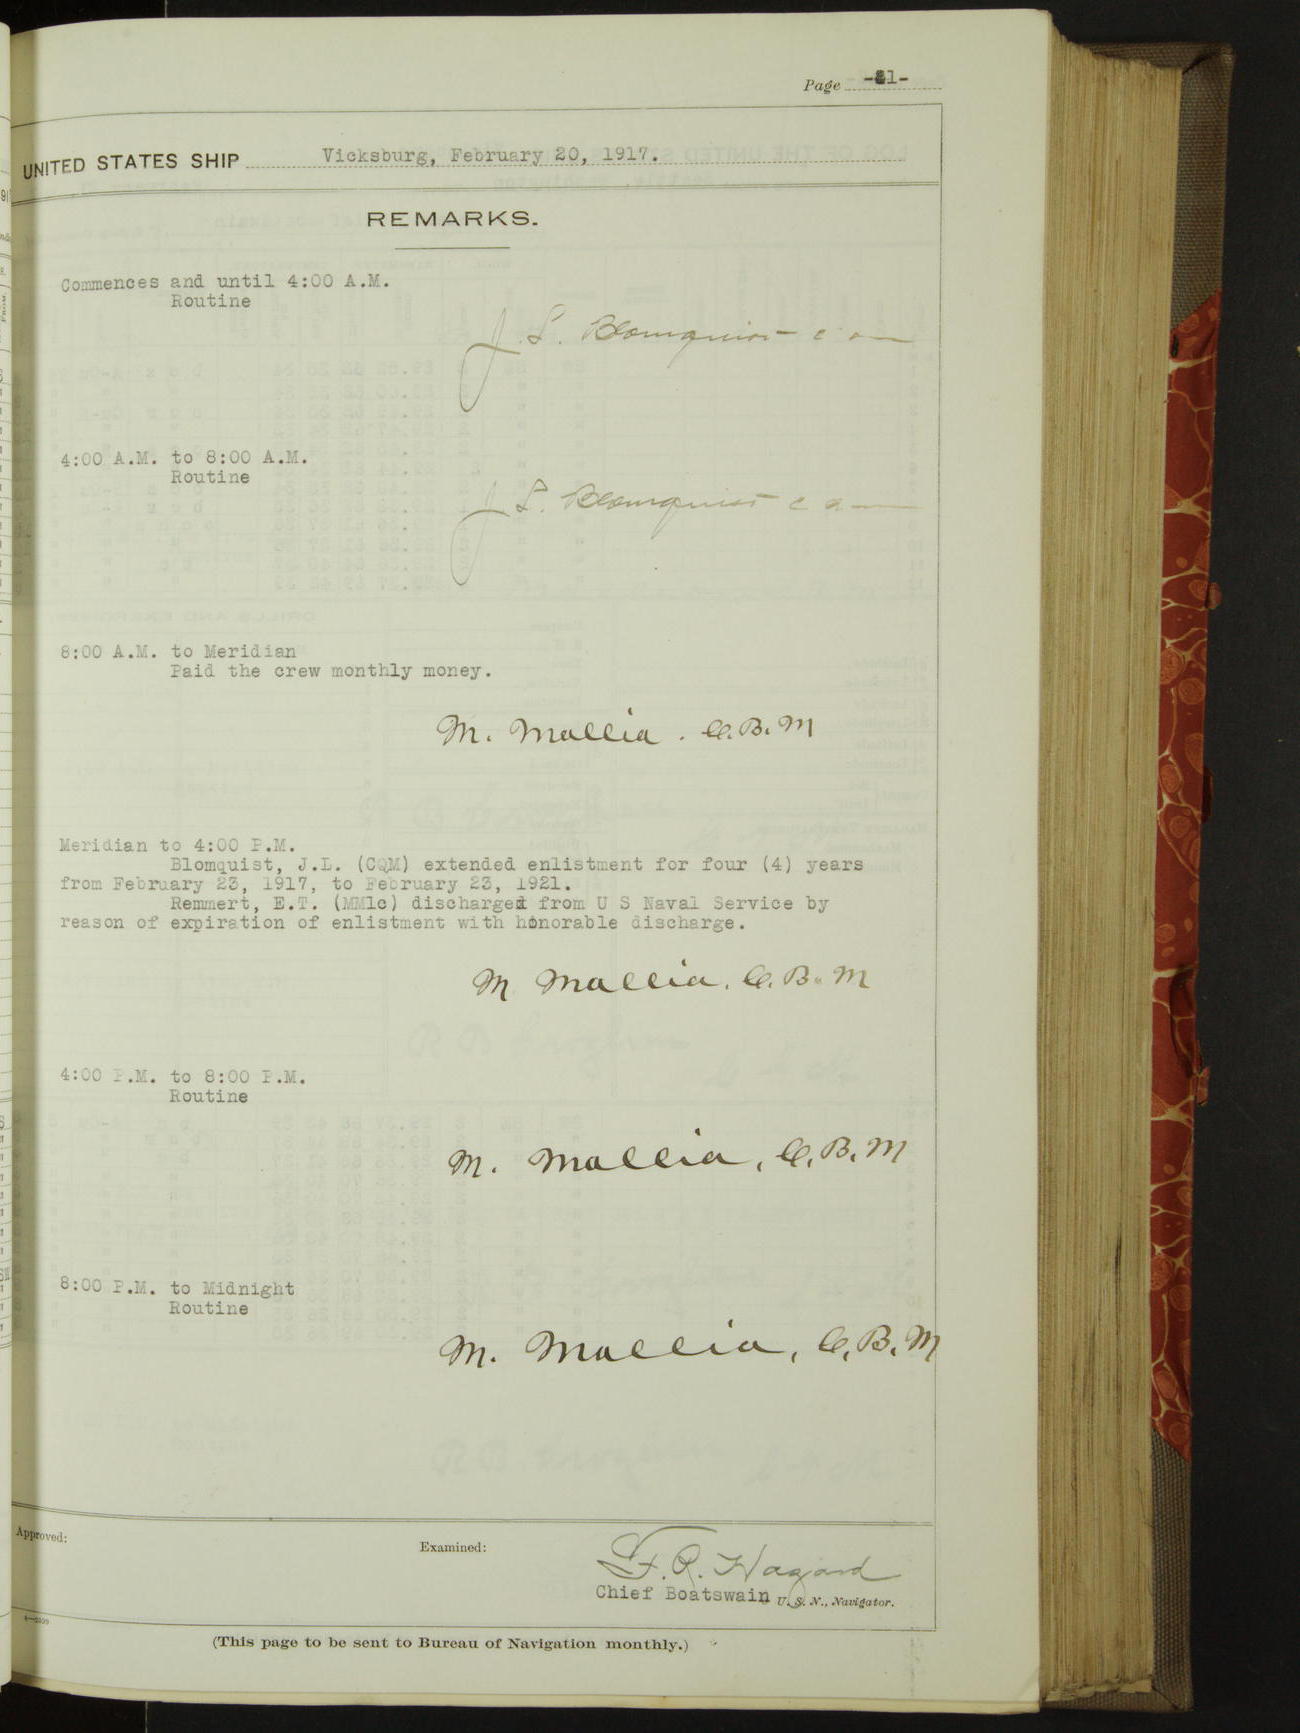 Page -41-
UNITED STATES SHIP Vicksburg, February 20, 1917.
REMARKS.
Commences and until 4:00 A.M.
Routine
J. L. Blomquist C Q M
4:00 A.M. to 8:00 A.M.
Routine
J. L. Blomquist C Q M
8:00 A.M. to Meridian
Paid the crew monthly money.
M. Mallia. C.B.M
Meridian to 4:00 P.M.
Blomquist, J.L. (CQM) extended enlistment for four (4) years
from February 23, 1917, to February 23, 1921.
Remmert, E.T. (MM1c) discharged from U S Naval Service by
reason of expiration of enlistment with honorable discharge.
M Mallia, C. B. M
4:00 P.M. to 8:00 P.M.
Routine
M. Mallia, C. B. M
8:00 P.M. to Midnight
Routine
M. Mallia, C. B. M
Approved:
Examined:
F. R. Hazard
Chief Boatswain U. S. N., Navigator.
(This page to be sent to Bureau of Navigation monthly.)